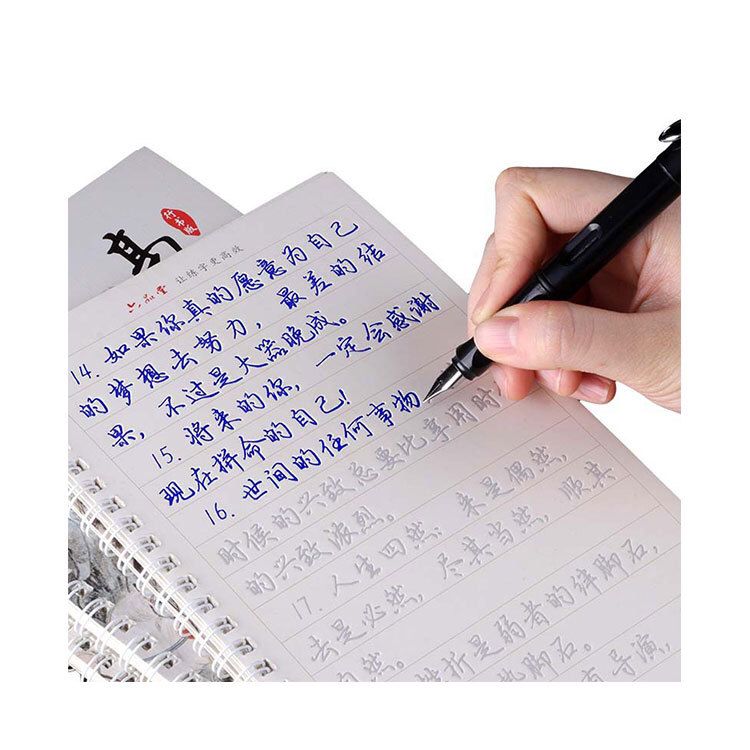 行书版
六品堂 让练字更高效
14. 如果你真的愿意为自己
的梦想去努力，最差的结
果，不过是大器晚成。
15. 将来的你，一定会感谢
现在拼命的自己！
16. 世间的任何事物
时候的兴致总要比享用时
的兴致浓烈。
17. 人生四然：来是偶然，
去是必然，尽其当然，顺其
自然。
挫折是弱者的绊脚石，
脚石。
有导演，